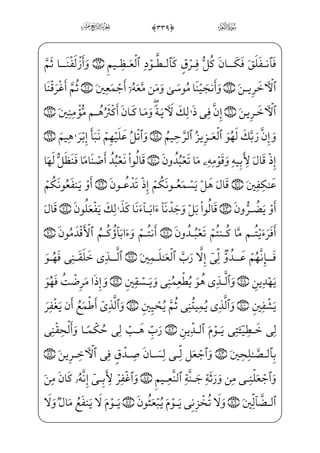 الجزء التاسع عشر ﴿٣٣٩﴾ سورة الشعراء
فَٱنفَلَقَ فَكَانَ كُلُّ فِرْقٍ كَٱلطَّوْدِ ٱلْعَظِيمِ ۝ وَأَزْلَفْنَا ثَمَّ
ٱلْءَاخَرِينَ ۝ وَأَنجَيْنَا مُوسَىٰ وَمَن مَّعَهُۥٓ أَجْمَعِينَ ۝ ثُمَّ أَغْرَقْنَا
ٱلْءَاخَرِينَ ۝ إِنَّ فِى ذَٰلِكَ لَءَايَةً ۖ وَمَا كَانَ أَكْثَرُهُم مُّؤْمِنِينَ ۝
وَإِنَّ رَبَّكَ لَهُوَ ٱلْعَزِيزُ ٱلرَّحِيمُ ۝ وَٱتْلُ عَلَيْهِمْ نَبَأَ إِبْرَٰهِيمَ ۝
إِذْ قَالَ لِأَبِيهِ وَقَوْمِهِۦ مَا تَعْبُدُونَ ۝ قَالُوا۟ نَعْبُدُ أَصْنَامًا فَنَظَلُّ لَهَا
عَٰكِفِينَ ۝ قَالَ هَلْ يَسْمَعُونَكُمْ إِذْ تَدْعُونَ ۝ أَوْ يَنفَعُونَكُمْ
أَوْ يَضُرُّونَ ۝ قَالُوا۟ بَلْ وَجَدْنَآ ءَابَآءَنَا كَذَٰلِكَ يَفْعَلُونَ ۝ قَالَ
أَفَرَءَيْتُم مَّا كُنتُمْ تَعْبُدُونَ ۝ أَنتُمْ وَءَابَآؤُكُمُ ٱلْأَقْدَمُونَ ۝
فَإِنَّهُمْ عَدُوٌّ لِّىٓ إِلَّا رَبَّ ٱلْعَٰلَمِينَ ۝ ٱلَّذِى خَلَقَنِى فَهُوَ
يَهْدِينِ ۝ وَٱلَّذِى هُوَ يُطْعِمُنِى وَيَسْقِينِ ۝ وَإِذَا مَرِضْتُ فَهُوَ
يَشْفِينِ ۝ وَٱلَّذِى يُمِيتُنِى ثُمَّ يُحْيِينِ ۝ وَٱلَّذِىٓ أَطْمَعُ أَن يَغْفِرَ
لِى خَطِيٓـَٔتِى يَوْمَ ٱلدِّينِ ۝ رَبِّ هَبْ لِى حُكْمًا وَأَلْحِقْنِى
بِٱلصَّٰلِحِينَ ۝ وَٱجْعَل لِّى لِسَانَ صِدْقٍ فِى ٱلْءَاخِرِينَ ۝
وَٱجْعَلْنِى مِن وَرَثَةِ جَنَّةِ ٱلنَّعِيمِ ۝ وَٱغْفِرْ لِأَبِىٓ إِنَّهُۥ كَانَ مِنَ
ٱلضَّآلِّينَ ۝ وَلَا تُخْزِنِى يَوْمَ يُبْعَثُونَ ۝ يَوْمَ لَا يَنفَعُ مَالٌ وَلَا